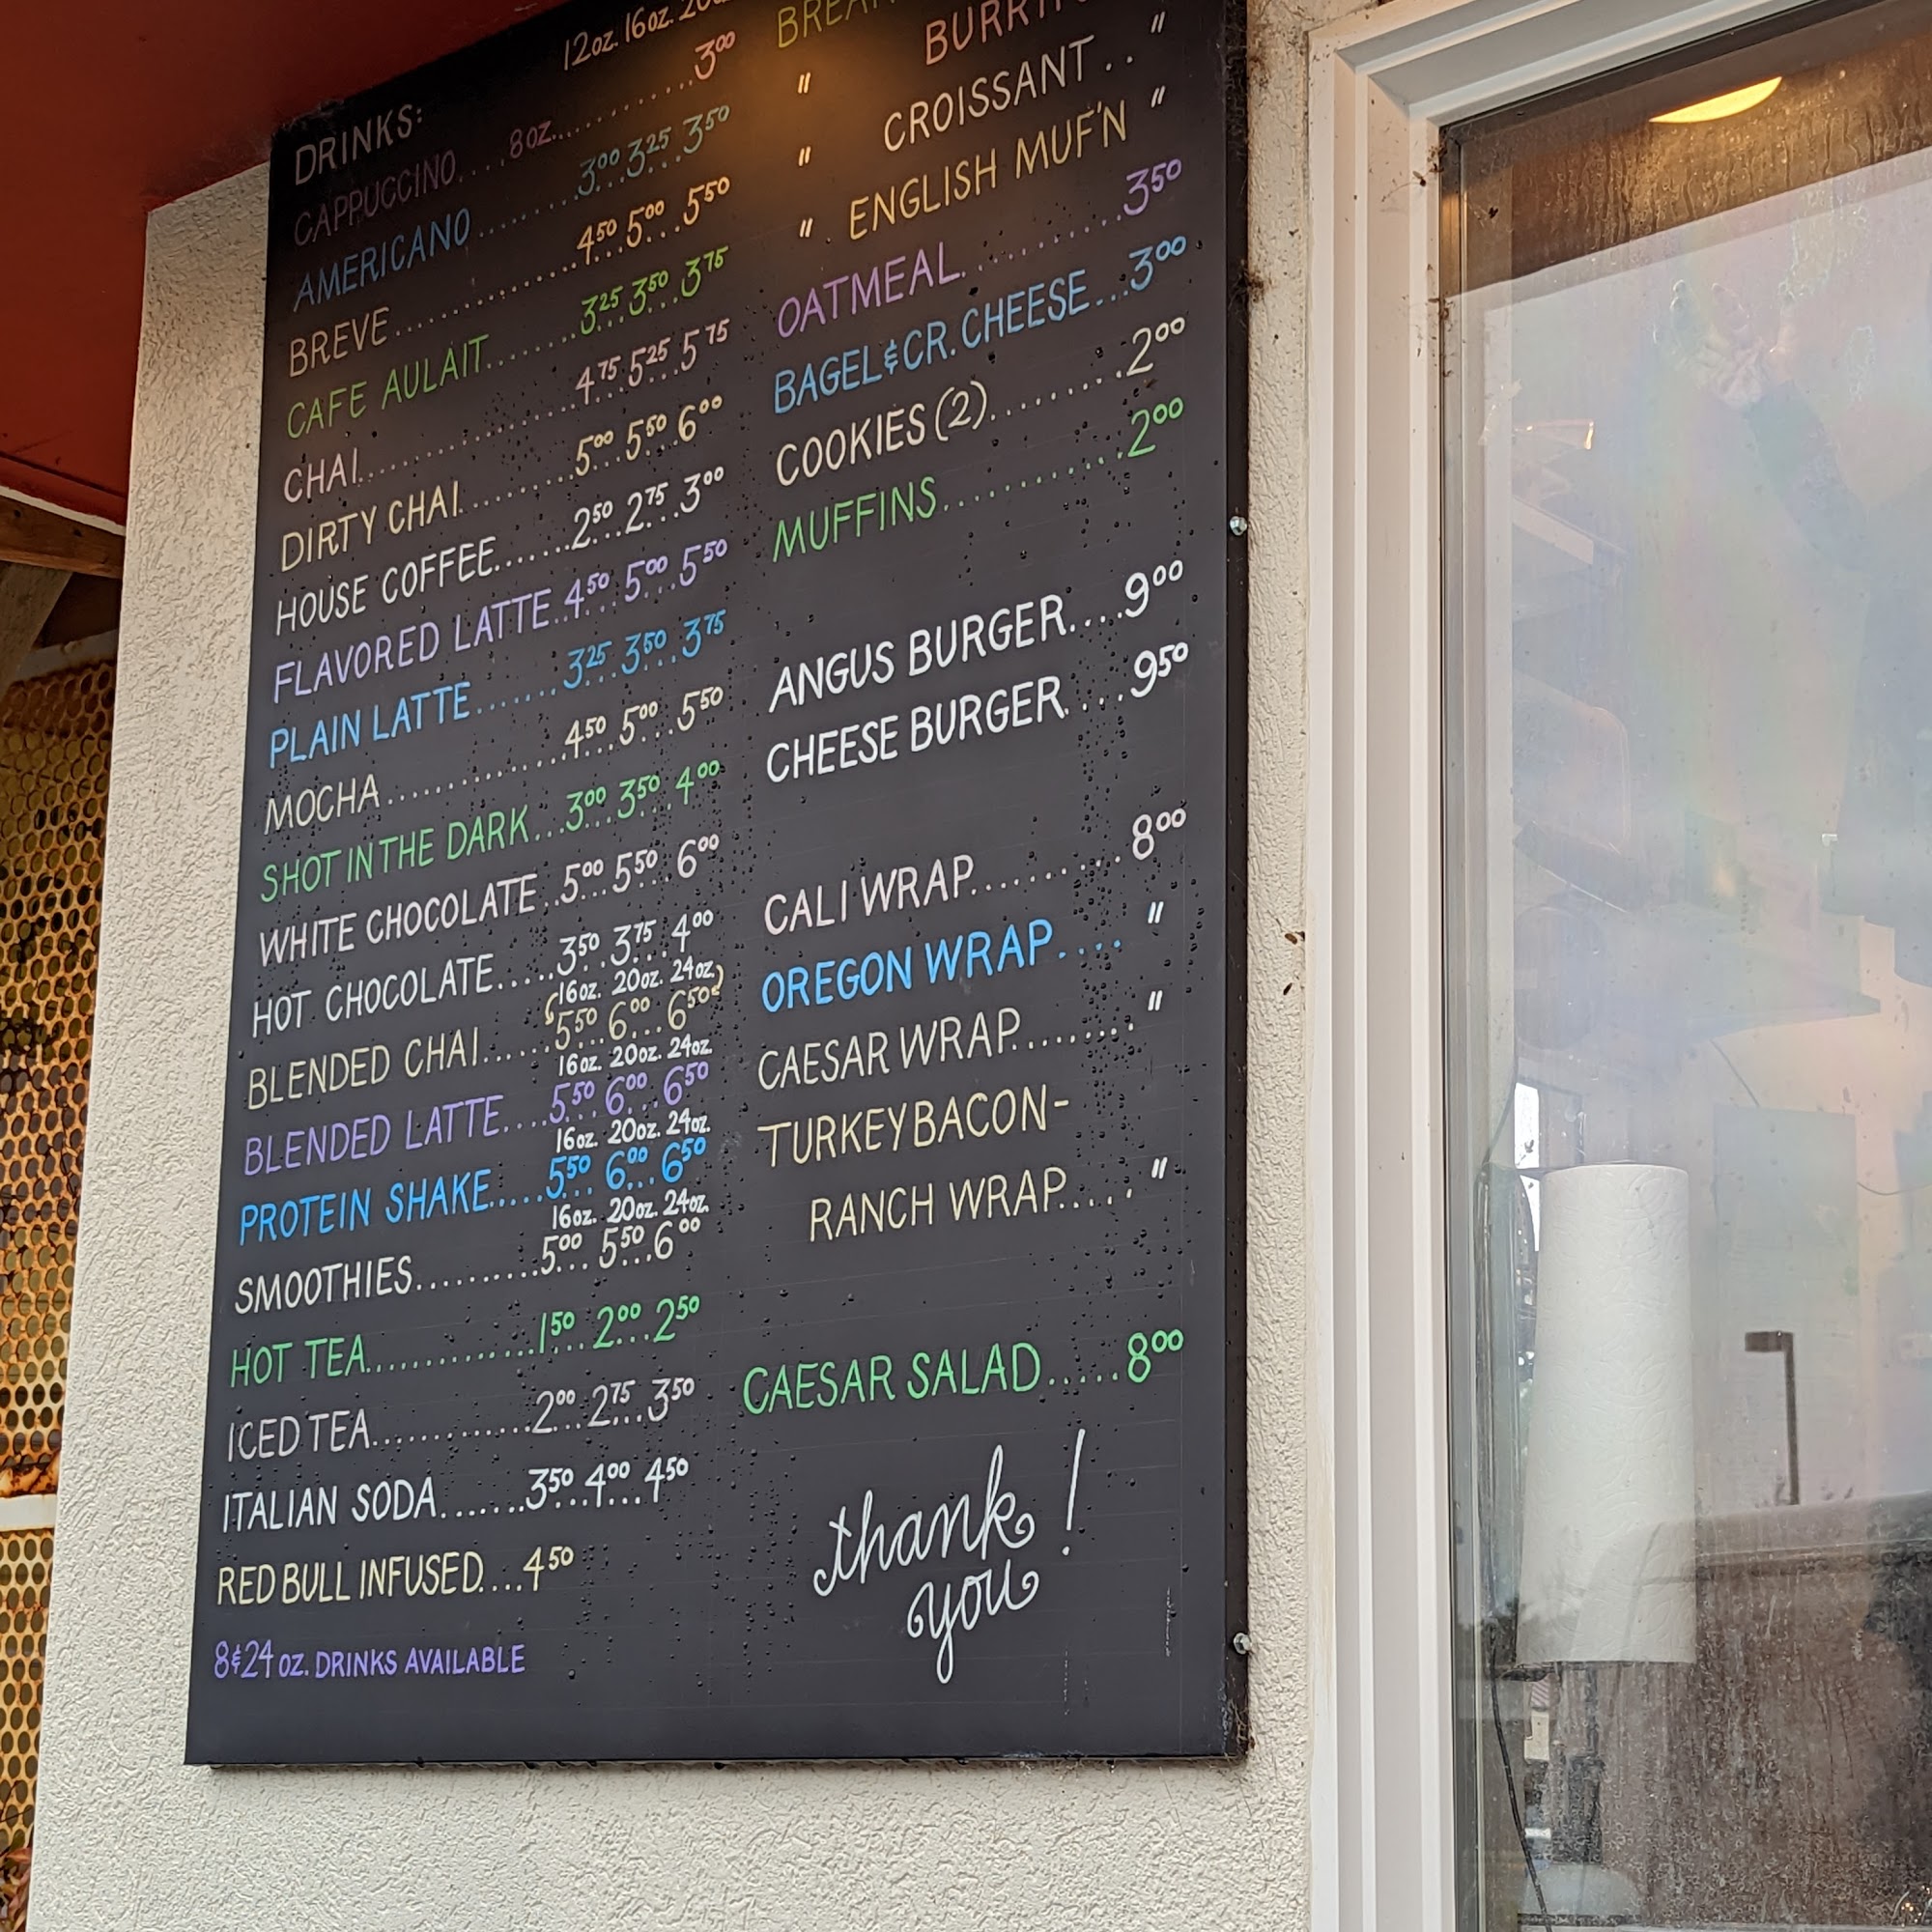 DRINKS: 12oz. 16oz.
CAPPUCCINO....8oz............3⁰⁰
AMERICANO.........3⁰⁰...3²⁵...3⁵⁰
BREVE................4⁵⁰...5⁰⁰...5⁵⁰
CAFE AULAIT.........3²⁵...3⁵⁰...3⁷⁵
CHAI................4⁷⁵...5²⁵...5⁷⁵
DIRTY CHAI..........5⁰⁰...5⁵⁰...6⁰⁰
HOUSE COFFEE......2⁵⁰...2⁷⁵...3⁰⁰
FLAVORED LATTE..4⁵⁰...5⁰⁰...5⁵⁰
PLAIN LATTE.......3²⁵...3⁵⁰...3⁷⁵
MOCHA...............4⁵⁰...5⁰⁰...5⁵⁰
SHOT IN THE DARK...3⁰⁰...3⁵⁰...4⁰⁰
WHITE CHOCOLATE..5⁰⁰...5⁵⁰...6⁰⁰
HOT CHOCOLATE.....3⁵⁰...3⁷⁵...4⁰⁰
16oz. 20oz. 24oz.
BLENDED CHAI......5⁵⁰...6⁰⁰...6⁵⁰
16oz. 20oz. 24oz.
BLENDED LATTE....5⁵⁰...6⁰⁰...6⁵⁰
16oz. 20oz. 24oz.
PROTEIN SHAKE.....5⁵⁰...6⁰⁰...6⁵⁰
16oz. 20oz. 24oz.
SMOOTHIES..........5⁰⁰...5⁵⁰...6⁰⁰
HOT TEA..............1⁵⁰...2⁰⁰...2⁵⁰
ICED TEA.............2⁰⁰...2⁷⁵...3⁵⁰
ITALIAN SODA.......3⁵⁰...4⁰⁰...4⁵⁰
RED BULL INFUSED....4⁵⁰
8&24 oz. DRINKS AVAILABLE
" CROISSANT.. "
" ENGLISH MUF'N "
OATMEAL...........3⁵⁰
BAGEL & CR. CHEESE...3⁰⁰
COOKIES (2).........2⁰⁰
MUFFINS............2⁰⁰
ANGUS BURGER....9⁰⁰
CHEESE BURGER....9⁵⁰
CALI WRAP.........8⁰⁰
OREGON WRAP.... "
CAESAR WRAP........ "
TURKEY BACON-
RANCH WRAP.... "
CAESAR SALAD.....8⁰⁰
thank
you!